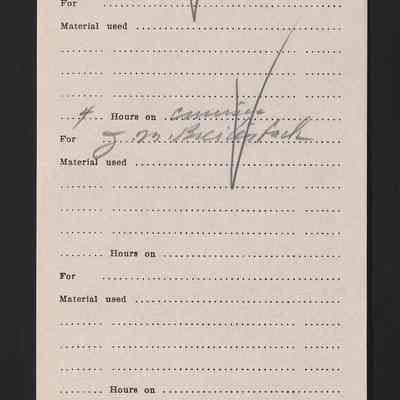 For
Material used
4 Hours on
For J M Breidenbach
Material used
Hours on
For
Material used
Hours on